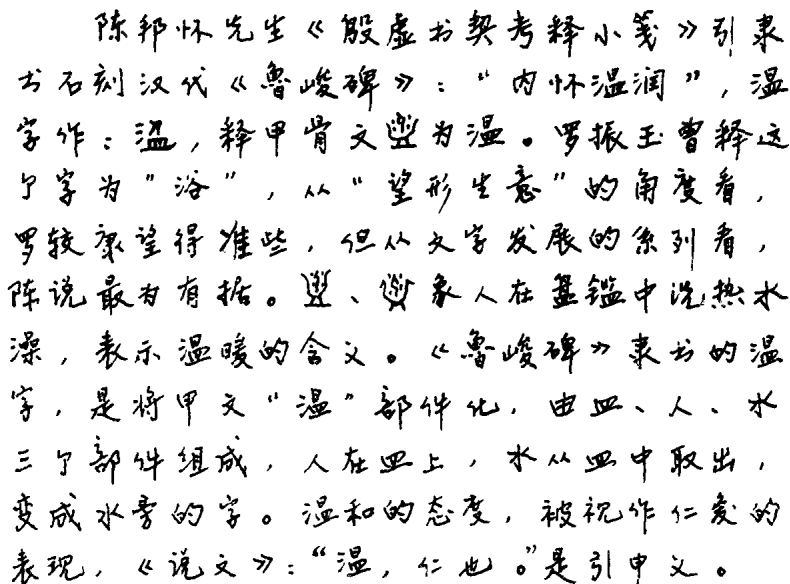 陈邦怀先生《殷虚书契考释小笺》引隶
书石刻汉代《鲁峻碑》：“内怀温润”，温
字作：，释甲骨文为温。罗振玉曾释这
个字为“浴”，从“望形生意”的角度看，
罗较康望得准些，但从文字发展的系列看，
陈说最为有据。、象人在盘鉴中洗热水
澡，表示温暖的含义。《鲁峻碑》隶书的温
字，是将甲文“温”部件化，由皿、人、水
三个部件组成，人在皿上，水从皿中取出，
变成水旁的字。温和的态度，被视作仁爱的
表现，《说文》：“温，仁也。”是引申义。